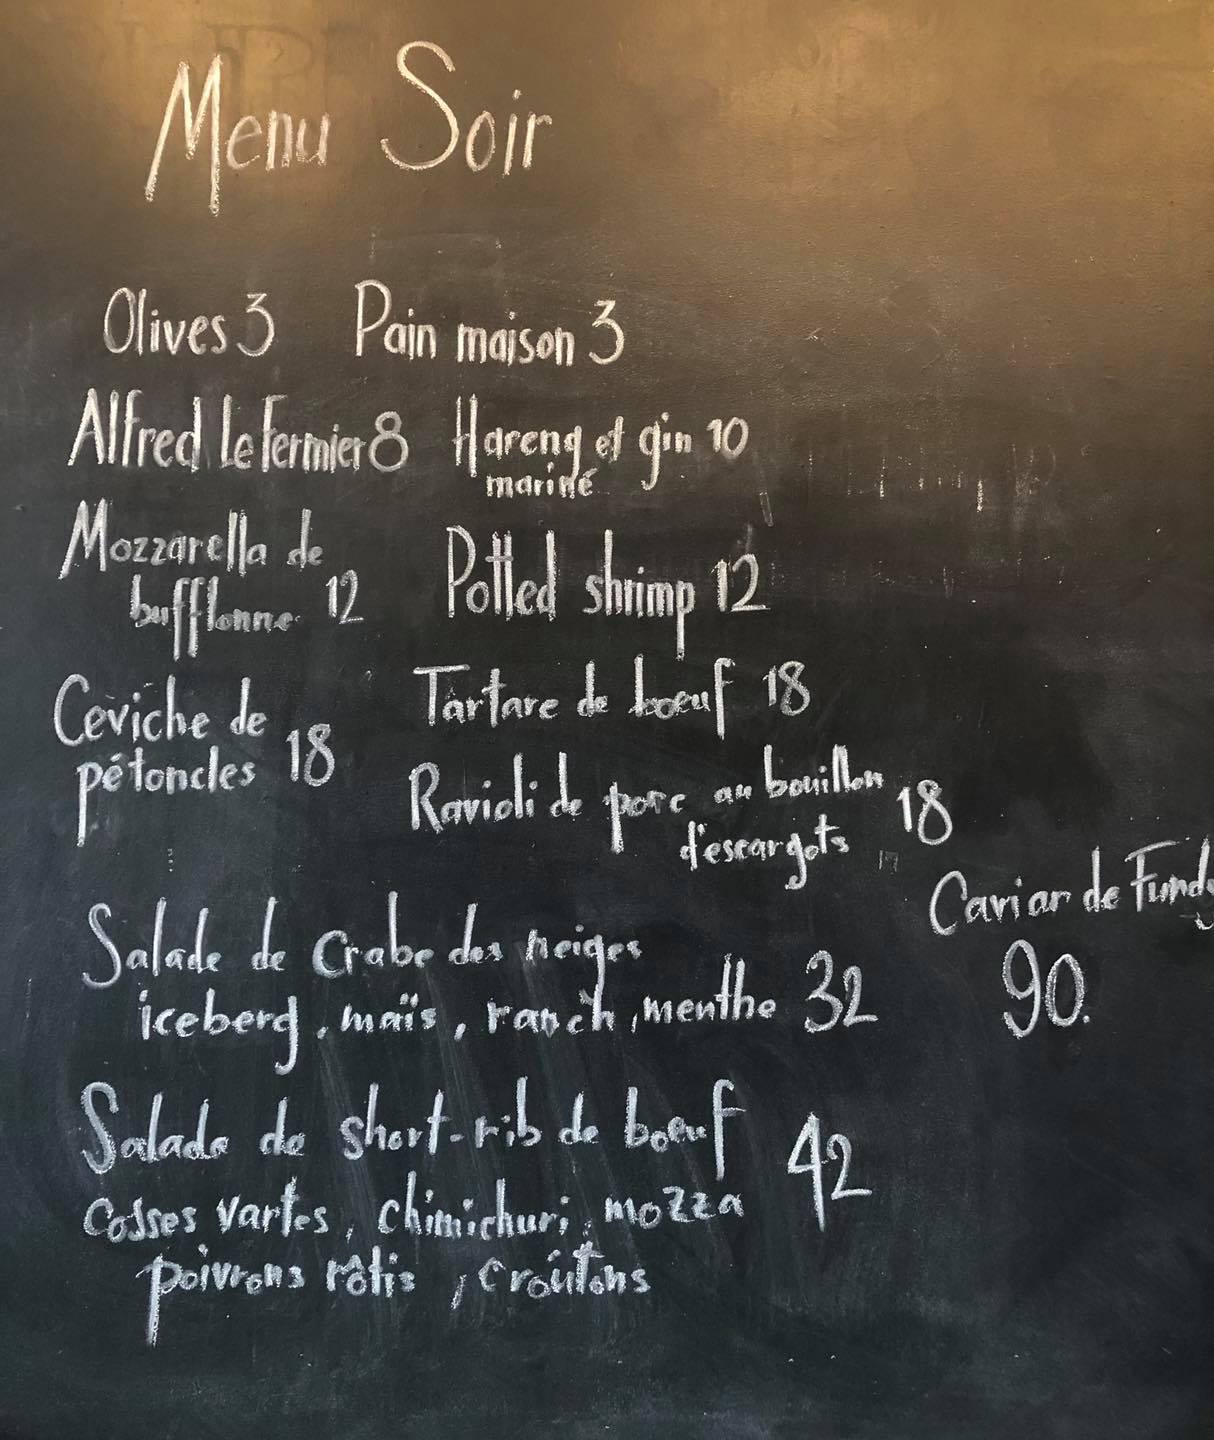 Menu Soir
Olives 3 Pain maison 3
Alfred Le Fermier 8 Hareng et gin 10
mariné
Mozzarella de
bufflonne 12 Potted shrimp 12
Ceviche de
pétoncles 18
Tartare de boeuf 18
Ravioli de porc au bouillon
d'escargots 18
Caviar de Fundy
90.
Salade de Crabe des neiges
iceberg, maïs, ranch, menthe 32
Salade de short-rib de boeuf 42
Cosses vartes, chimichuri, mozza
poivrons rôtis, croûtons